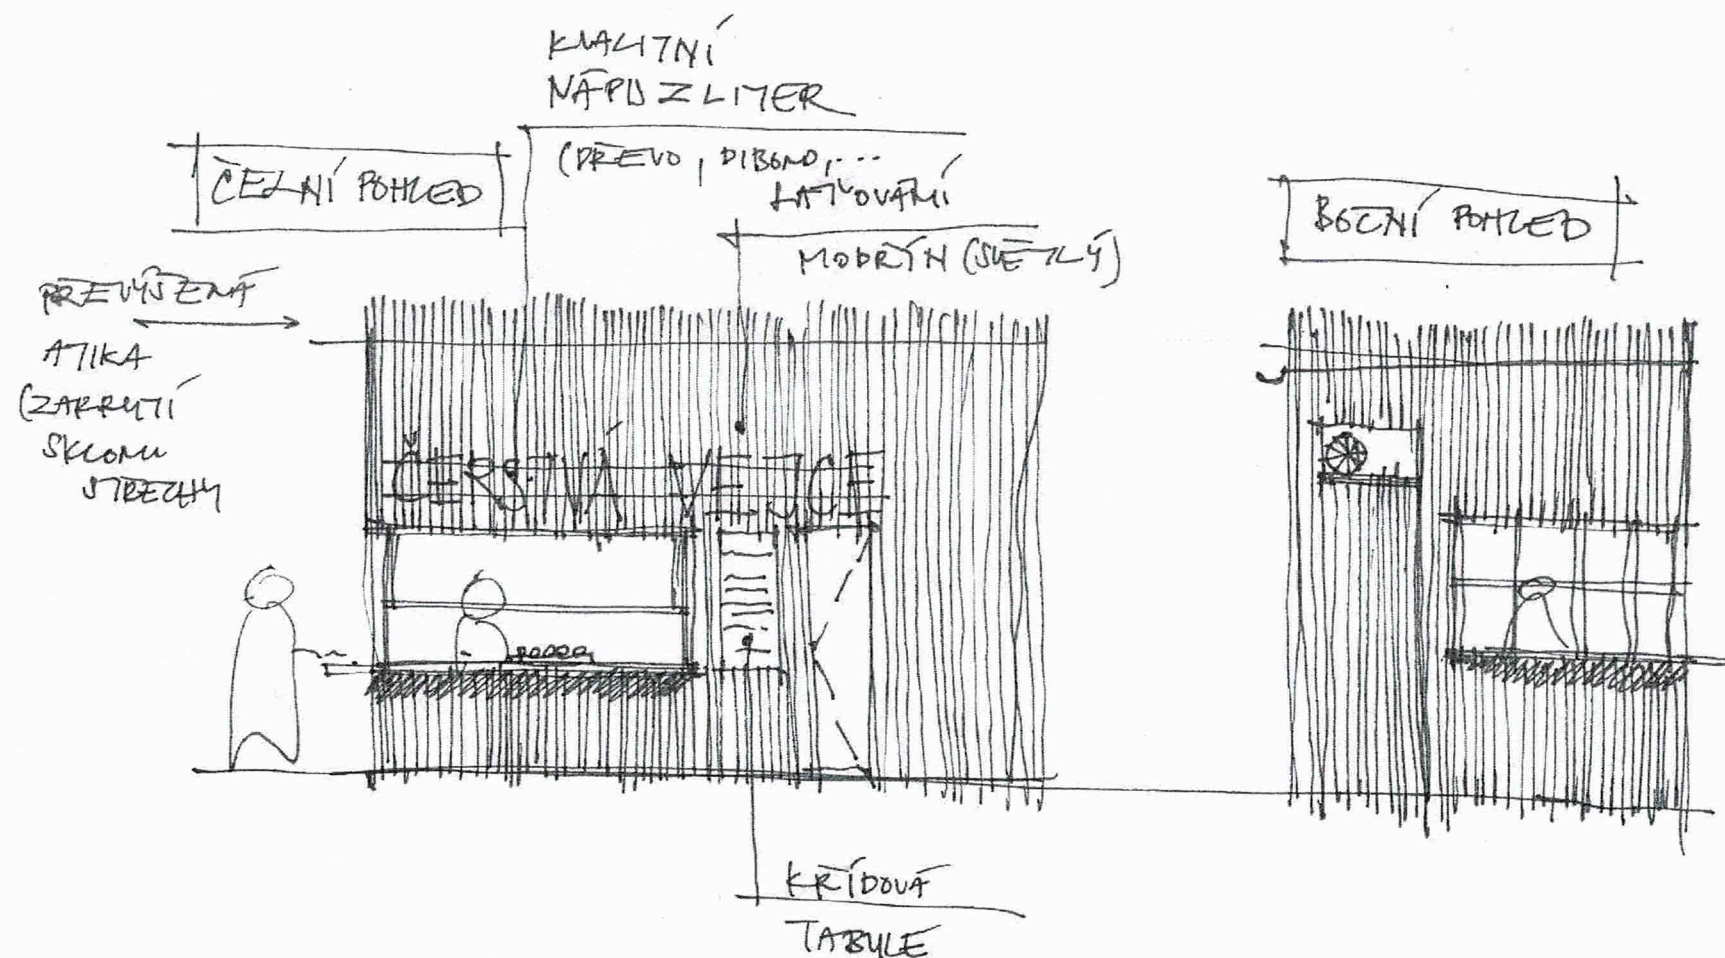 KVALITNÍ
NÁPIS Z LITER
(DŘEVO, DIBOND,...
ČELNÍ POHLED
LAŤOVÁNÍ
MODŘÍN (SVĚTLÝ)
BOČNÍ POHLED
PŘEVÝŠENÁ
ATIKA
(ZAKRYTÍ
SKLONU
STŘECHY
ČERSTVÁ VEJCE
KŘÍDOVÁ
TABULE